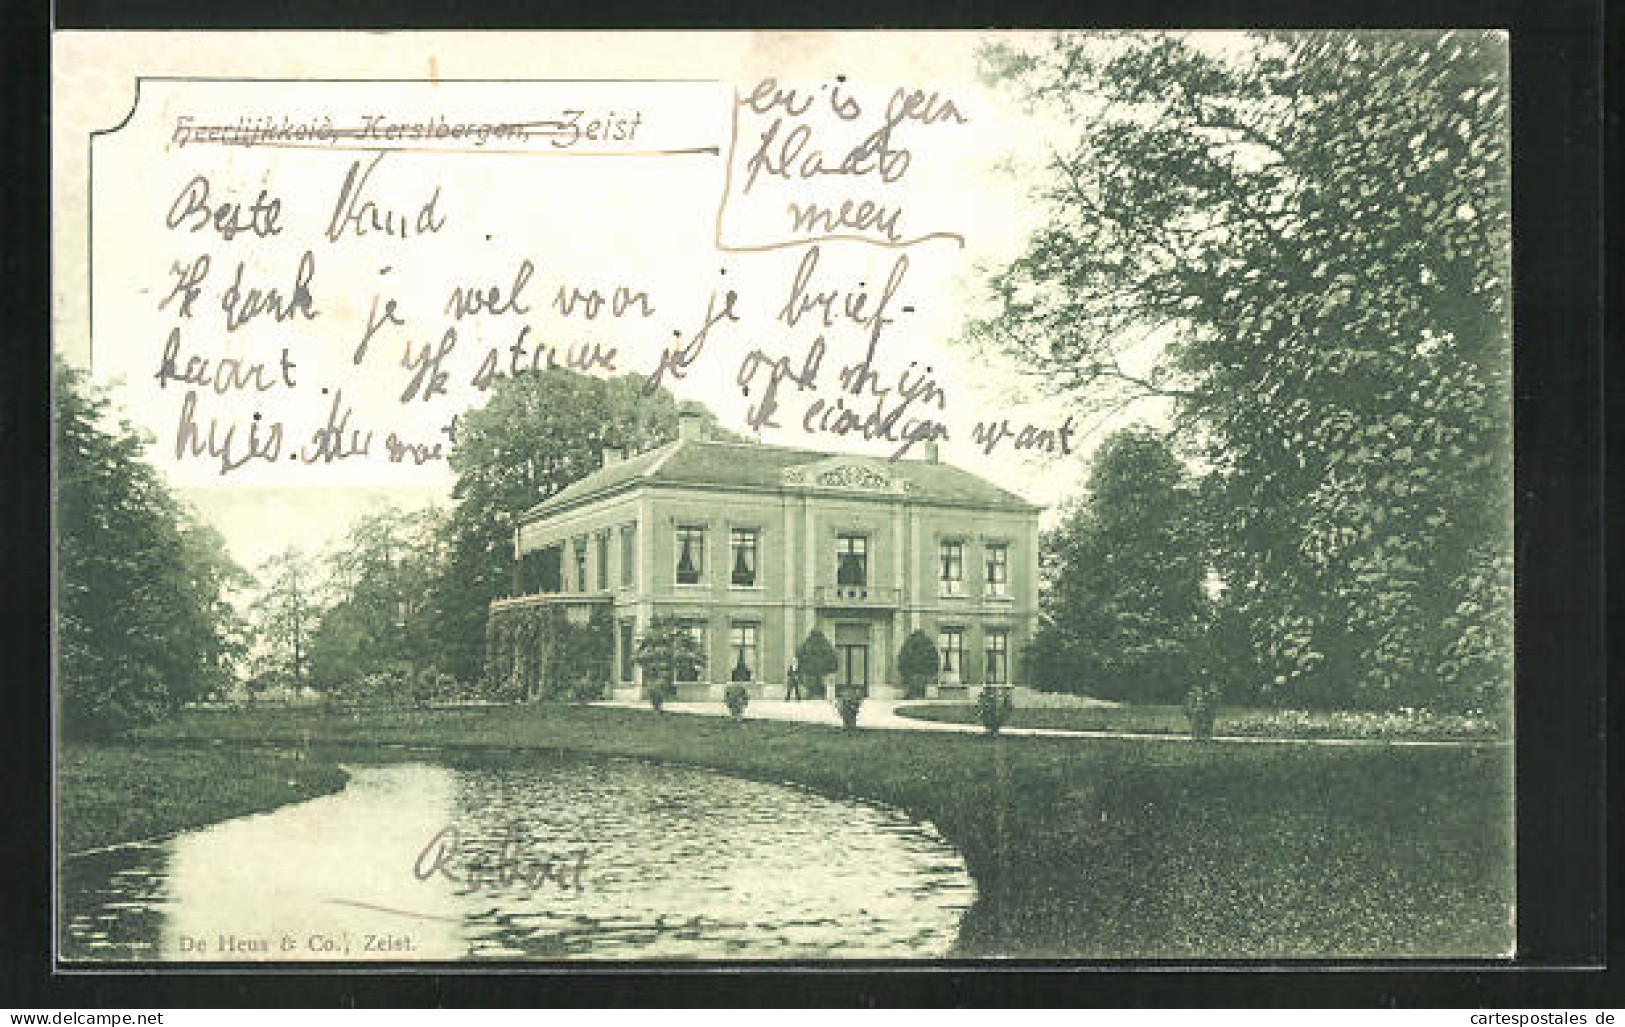 Heerlijkheid, Kerstbergen, Zeist
Beste
Ik dank je wel voor je brief-
kaart. Ik stuur je ook mijn
huis. Nu moet ik eindigen want
er is geen
plaats
meer
Robert
De Heus & Co., Zeist.
cartespostales.de
cartespostales de